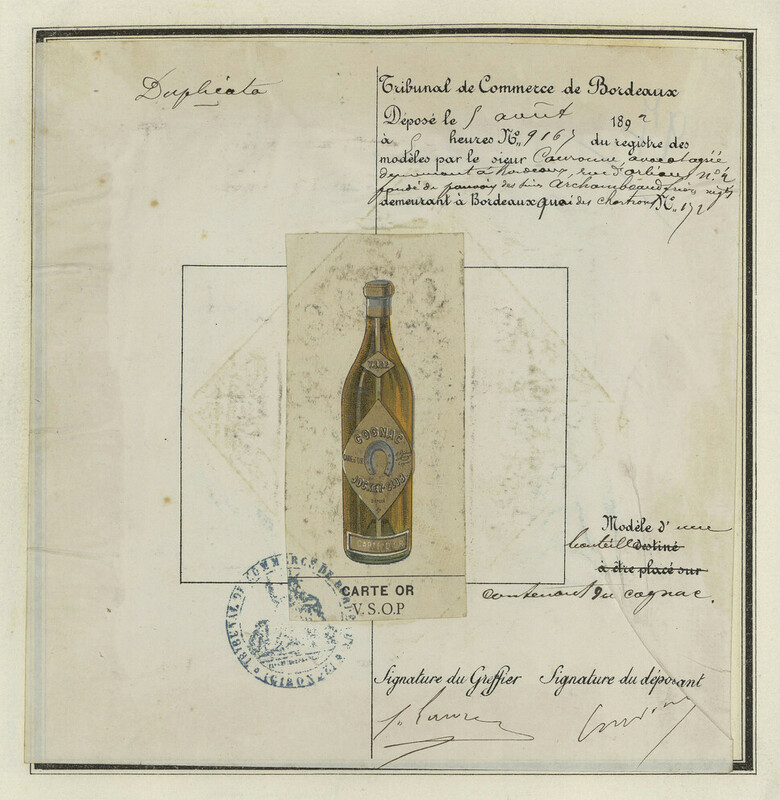 Duplicata
Tribunal de Commerce de Bordeaux
Déposé le 5 août 1892
à heures N° 9167 du registre des
modèles par le sieur Couronne, avocat agréé
demeurant à Bordeaux, rue d'Orléans, N° 2
fondé de pouvoirs des srs Archambeaud frères, négts
demeurant à Bordeaux quai des Chartrons N° 172
COGNAC
JOCKEY-CLUB
CARTE OR
CARTE OR
V.S.O.P
Modèle d'une
bouteille destiné
à être placé sur
contenant du cognac.
TRIBUNAL DE COMMERCE DE BORDEAUX
(GIRONDE)
Signature du Greffier Signature du déposant